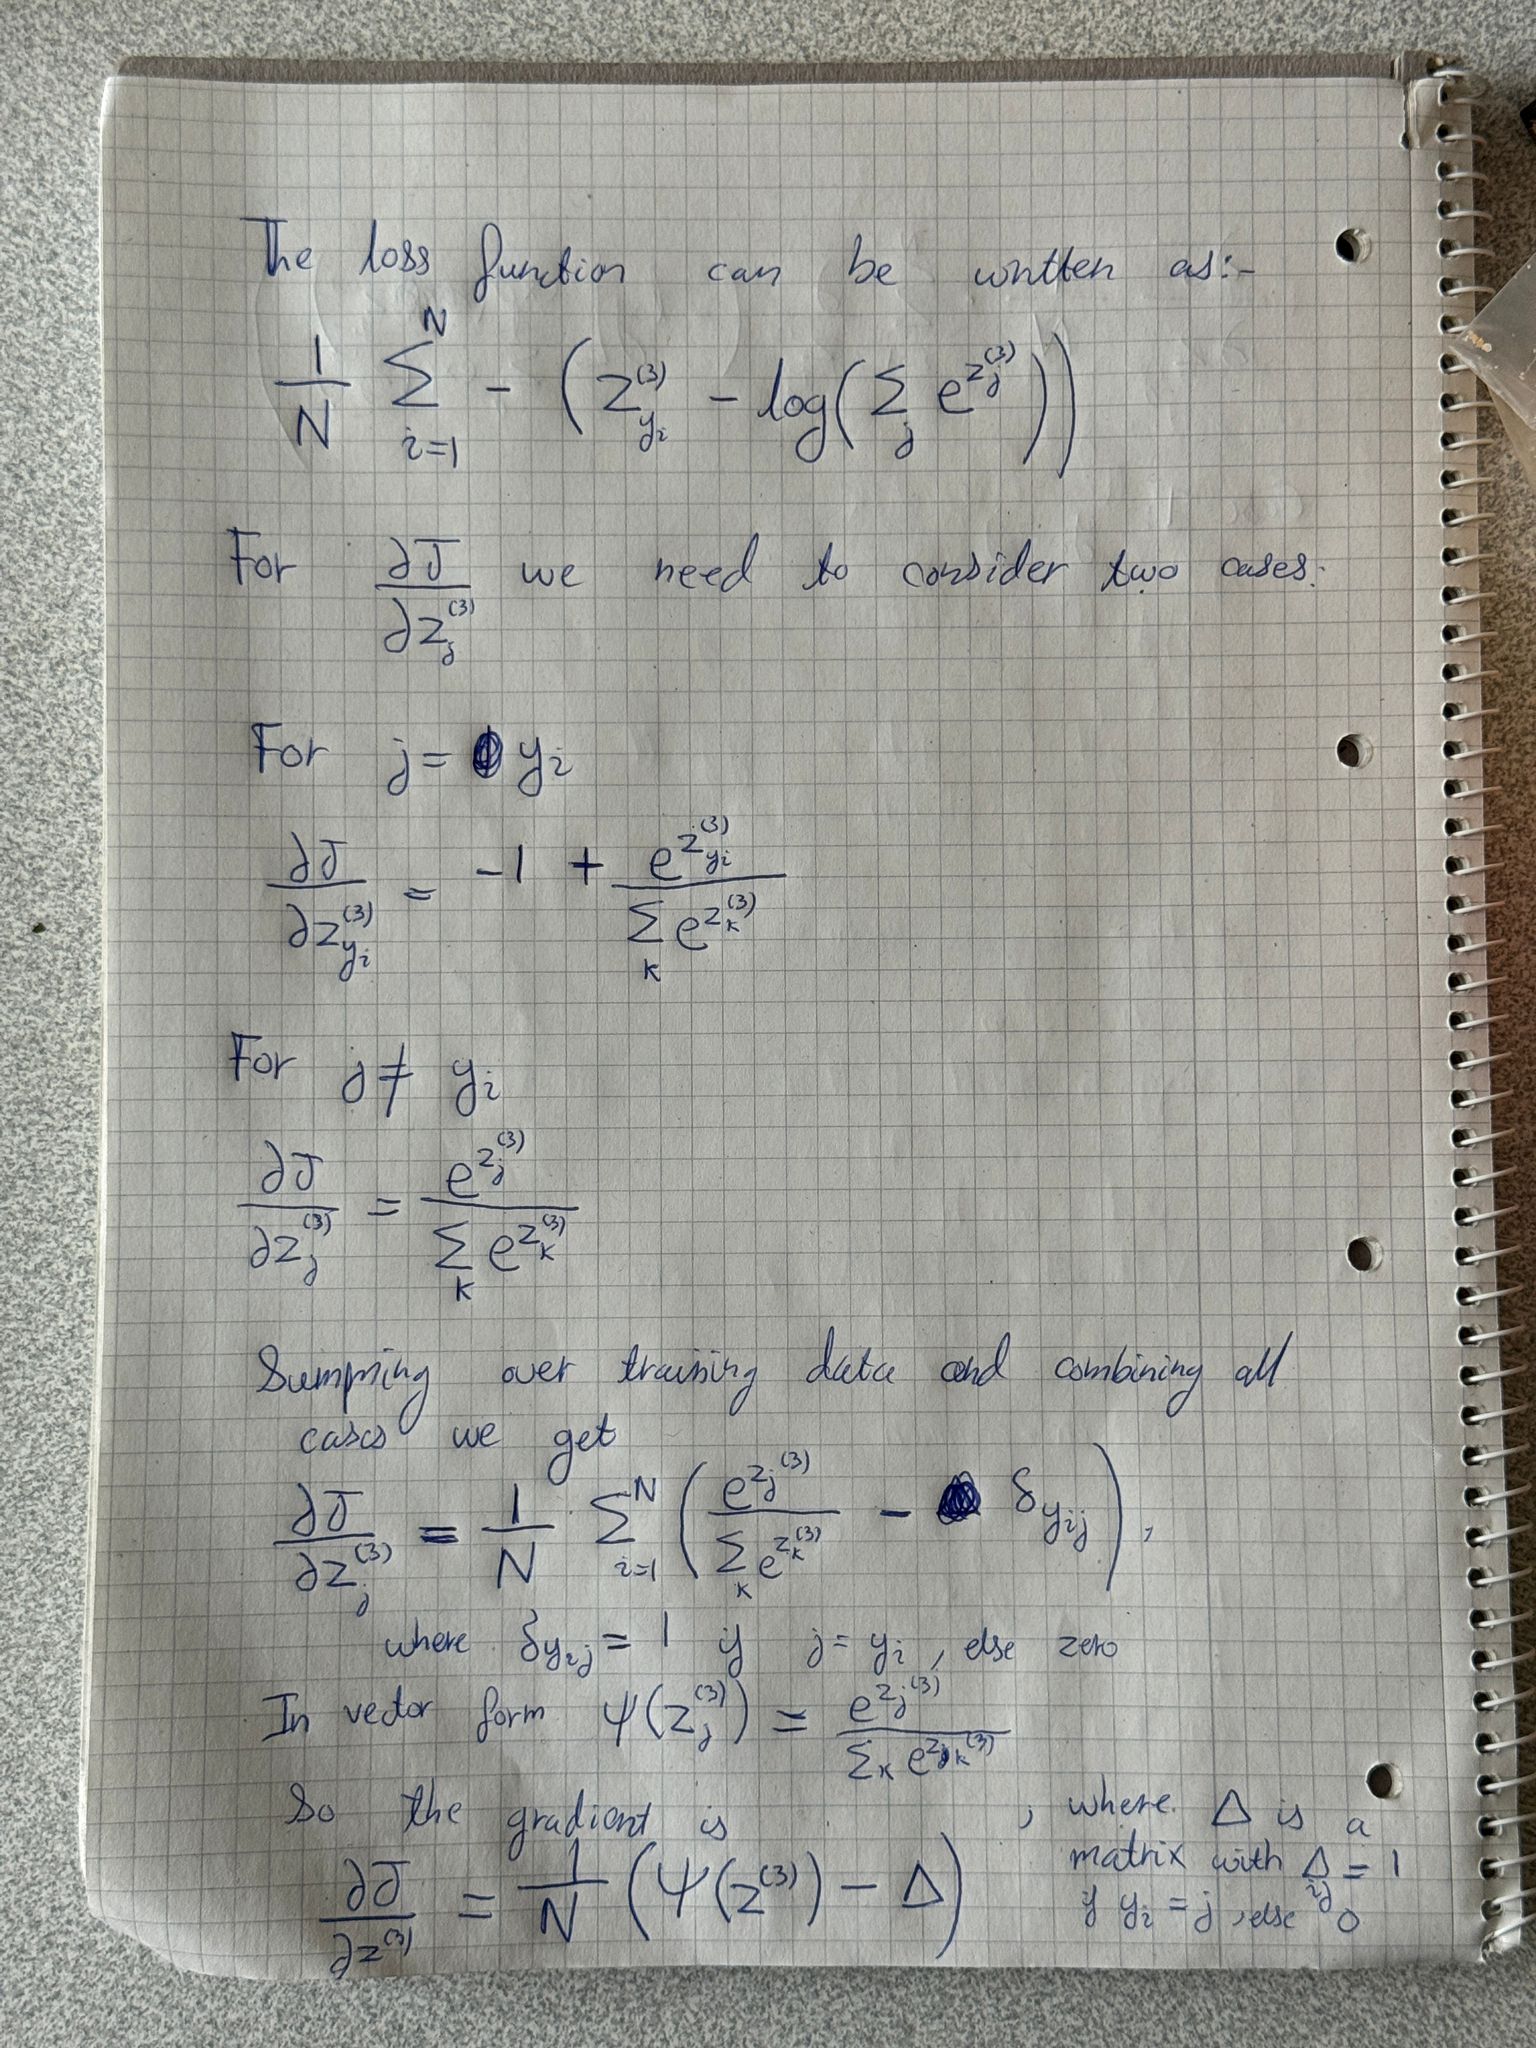 The loss function can be written as:-
1/N ∑_{i=1}^{N} - ( z_{y_i}^{(3)} - log( ∑_j e^{z_j^{(3)}} ) )
For ∂J/∂z_j^{(3)} we need to consider two cases:
For j = y_i
∂J/∂z_{y_i}^{(3)} = -1 + e^{z_{y_i}^{(3)}} / ∑_k e^{z_k^{(3)}}
For j ≠ y_i
∂J/∂z_j^{(3)} = e^{z_j^{(3)}} / ∑_k e^{z_k^{(3)}}
Summing over training data and combining all
cases we get
∂J/∂z_j^{(3)} = 1/N ∑_{i=1}^{N} ( e^{z_j^{(3)}} / ∑_k e^{z_k^{(3)}} - δ_{y_{ij}} ),
where δ_{y_{ij}} = 1 if j = y_i, else zero
In vector form ψ(z_j^{(3)}) = e^{z_j^{(3)}} / ∑_k e^{z_{jk}^{(3)}}
So the gradient is
∂J/∂z^{(3)} = 1/N ( ψ(z^{(3)}) - Δ )
, where Δ is a
matrix with Δ_{ij} = 1
if y_i = j, else 0